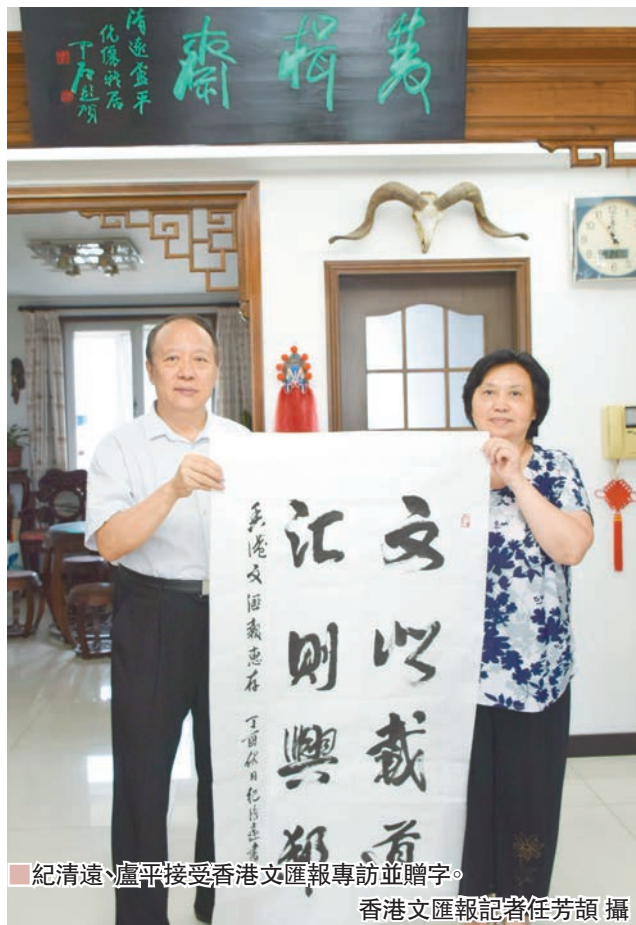 齋
清遠盧平
伉儷雅居
文以載道
汇則興邦
香港文匯報惠存 丁酉伏日紀清遠書
■紀清遠、盧平接受香港文匯報專訪並贈字。
香港文匯報記者任芳頡 攝